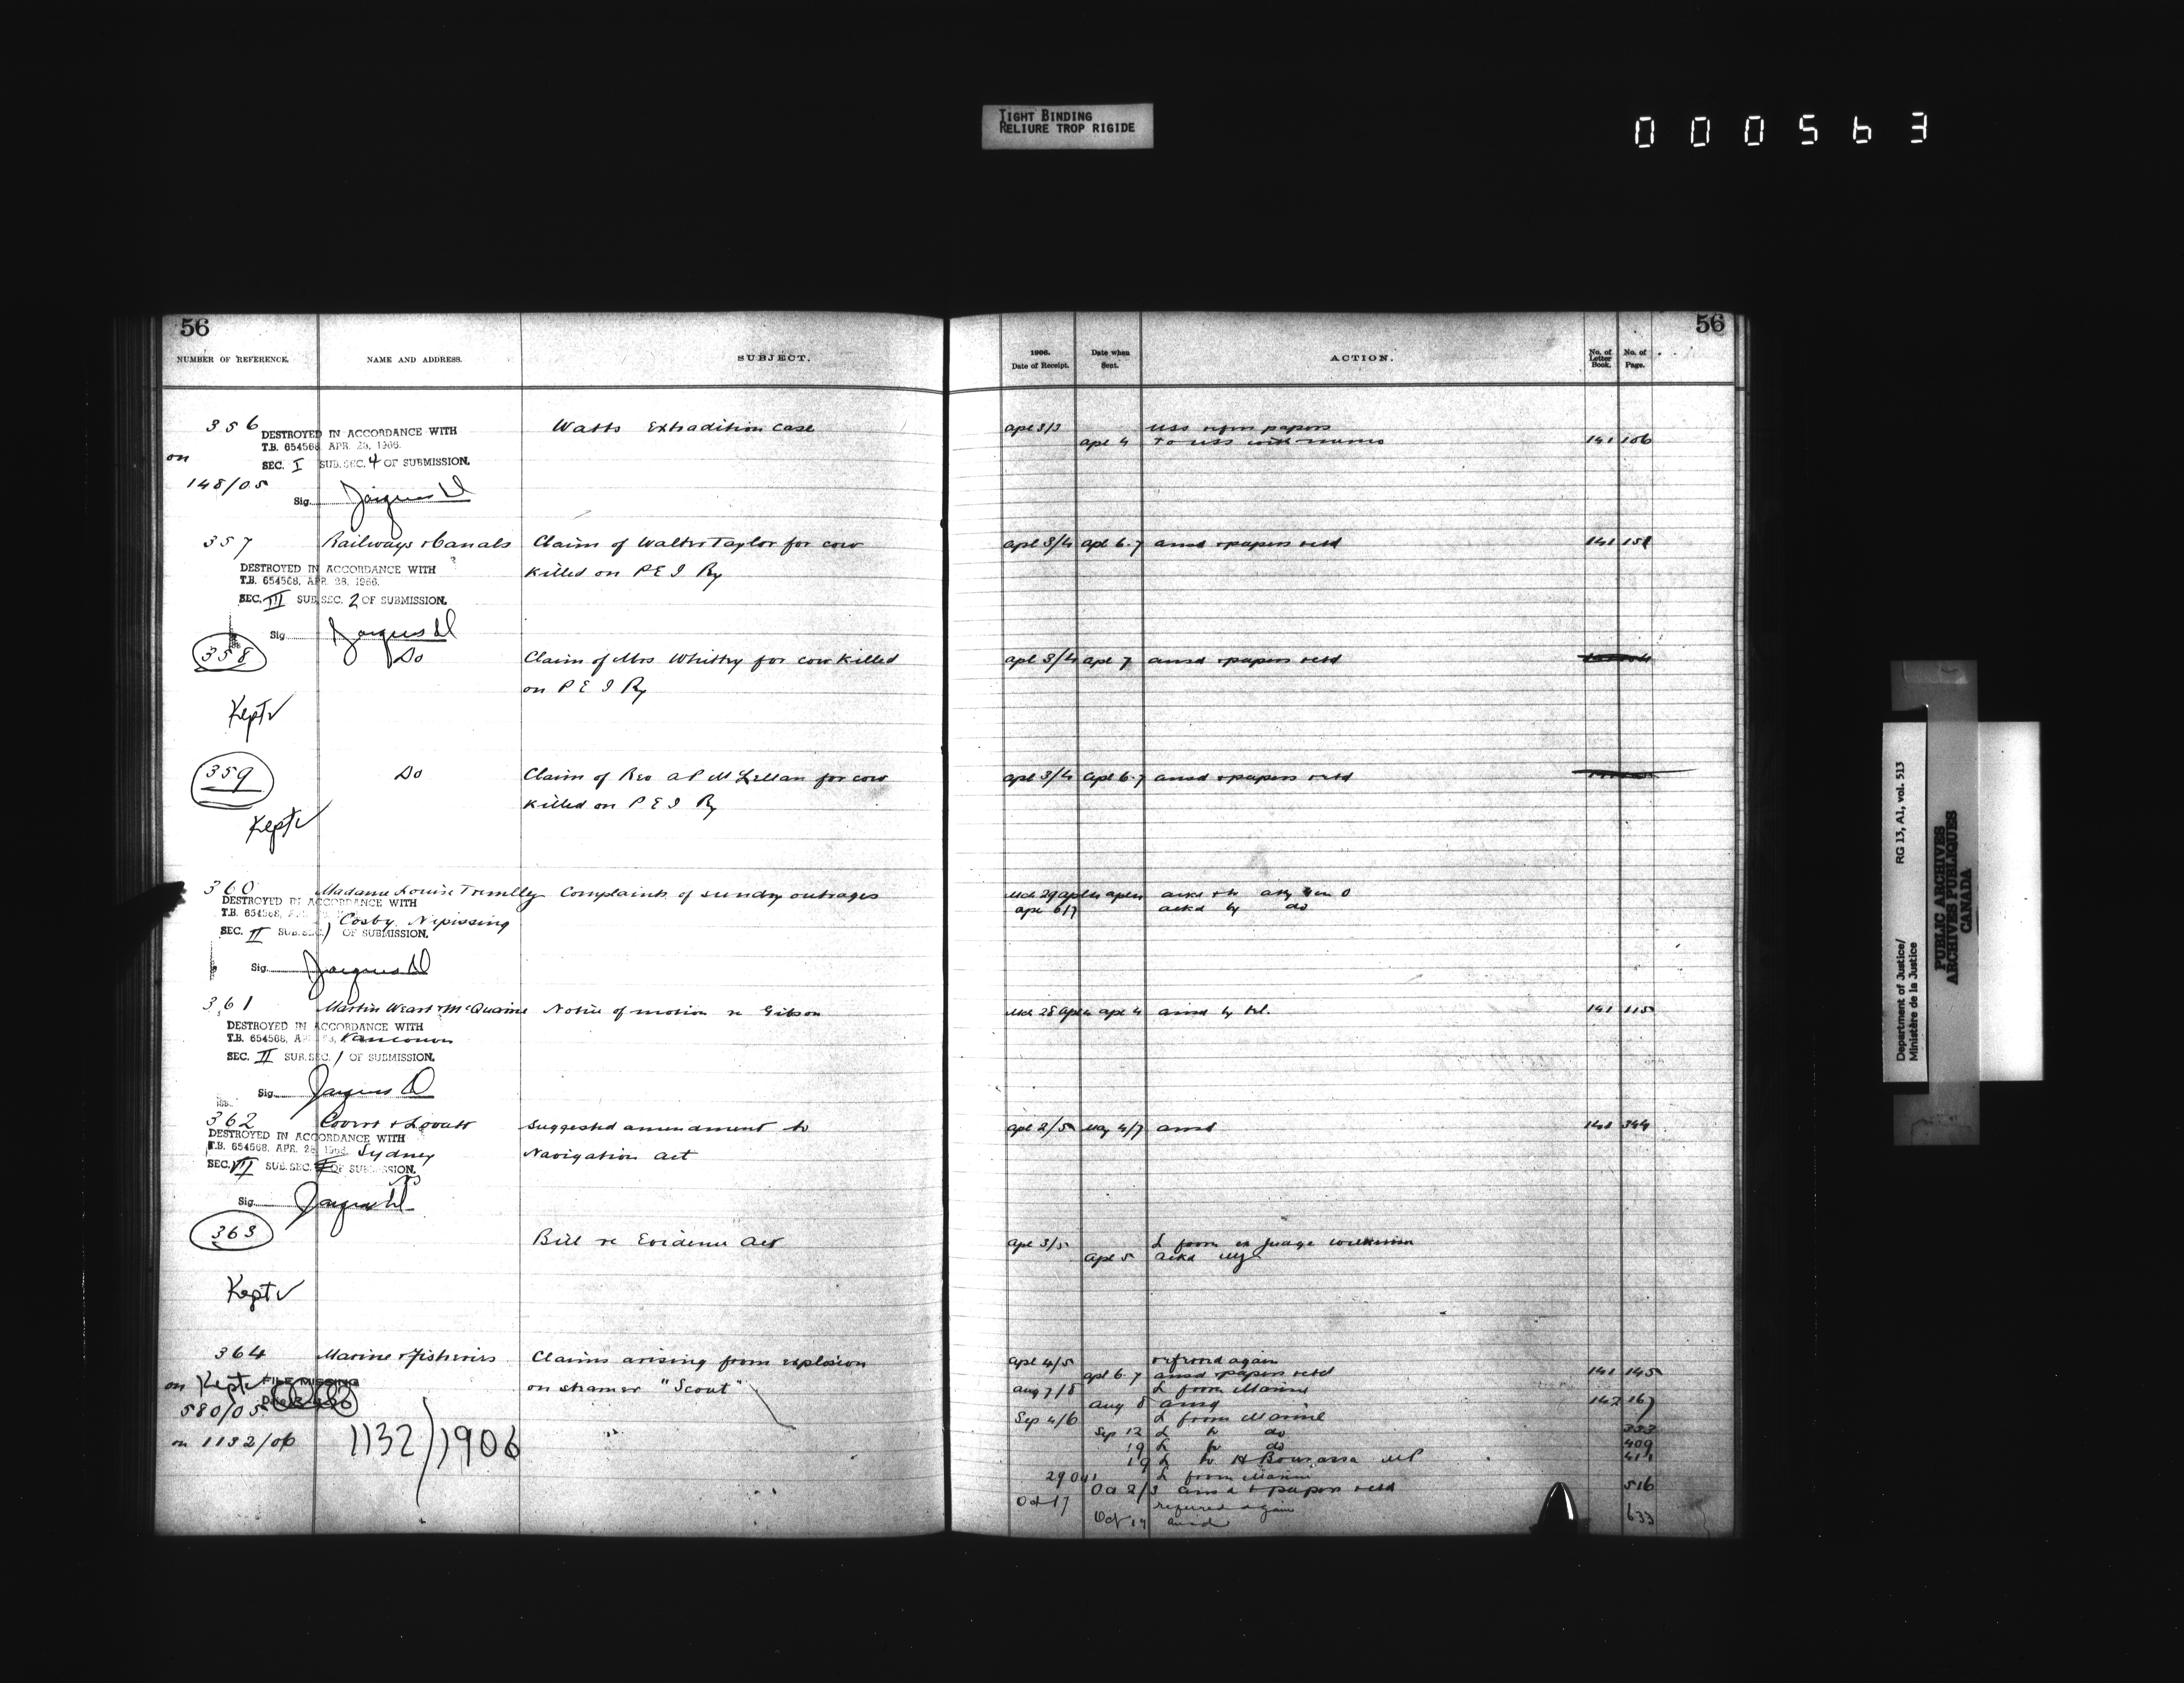 TIGHT BINDING
RELIURE TROP RIGIDE
000563
56
NUMBER OF REFERENCE.
NAME AND ADDRESS.
SUBJECT.
356
Watts Extradition case
DESTROYED IN ACCORDANCE WITH
T.B. 654568 APR. 28, 1966.
on
SEC. I SUB.SEC. 4 OF SUBMISSION.
148/05
Sig.
357 Railways & Canals Claim of Walter Taylor for cow
killed on P E I Ry
DESTROYED IN ACCORDANCE WITH
T.B. 654568, APR. 28, 1966.
SEC. III SUB.SEC. 2 OF SUBMISSION.
Sig.
358 Do Claim of Mrs Whitty for cow killed
on P E I Ry
Kept
359 Do Claim of Rev A P McLellan for cow
killed on P E I Ry
Kept
360 Madame Louise Complaints of sundry outrages
DESTROYED IN ACCORDANCE WITH
T.B. 654568,
Nipissing
SEC. II SUB.SEC. 1 OF SUBMISSION.
Sig.
361 Martin Weart & McQuarrie Notice of motion re Gibson
DESTROYED IN ACCORDANCE WITH
T.B. 654568, Vancouver
SEC. II SUB.SEC. 1 OF SUBMISSION.
Sig.
362 Lovett Suggested amendment to
Navigation Act
DESTROYED IN ACCORDANCE WITH
T.B. 654568, APR. 28, 1966. Sydney
SEC. VII SUB.SEC. OF SUBMISSION.
Sig.
363 Bill re Evidence Act
Kept
364 Marine & Fisheries Claims arising from explosion
on steamer "Scout"
on Kept FILE MISSING
580/05
on 1132/06
1132/1906
56
1906.
Date of Receipt.
Date when
Sent.
ACTION.
No. of
Letter
Book.
No. of
Page.
Apl 3/3 USS papers
Apl 4 To USS with memo 141 106
Apl 3/4 Apl 6-7 ansd & papers retd 141 151
Apl 3/4 Apl 7 ansd & papers retd
Apl 3/4 Apl 6-7 ansd & papers retd
Apl 6/7 ackd by do
Apl 4 ansd by tel. 141 115
Apl 2/5 May 4/7 ansd 344
Apl 3/5 L from ex Judge
Apl 5 ackd
Apl 4/5 referred again
Apl 6-7 ansd & papers retd 141 145
Aug 7/8 L from Marine
Aug 8 ansd 147 167
Sep 4/6 L from Marine
Sep 12 L to do 333
19 L to do 409
19 L to H Bourassa MP 411
L from Marine
Oct 2/3 ansd & papers retd 516
Oct 17 referred again
Oct 19 ansd 633
Department of Justice/
Ministère de la Justice
RG 13, A1, vol. 513
PUBLIC ARCHIVES
ARCHIVES PUBLIQUES
CANADA